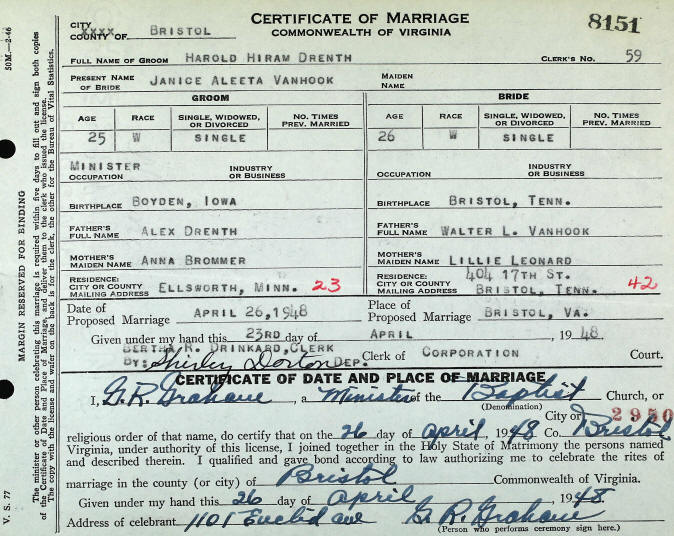 CERTIFICATE OF MARRIAGE
COMMONWEALTH OF VIRGINIA
8151
CITY XXXX COUNTY OF BRISTOL
FULL NAME OF GROOM HAROLD HIRAM DRENTH CLERK'S NO. 59
PRESENT NAME OF BRIDE JANICE ALEETA VANHOOK MAIDEN NAME
GROOM BRIDE
AGE RACE SINGLE, WIDOWED, OR DIVORCED NO. TIMES PREV. MARRIED AGE RACE SINGLE, WIDOWED, OR DIVORCED NO. TIMES PREV. MARRIED
25 W SINGLE 26 W SINGLE
MINISTER
OCCUPATION INDUSTRY OR BUSINESS OCCUPATION INDUSTRY OR BUSINESS
BIRTHPLACE BOYDEN, IOWA BIRTHPLACE BRISTOL, TENN.
FATHER'S FULL NAME ALEX DRENTH FATHER'S FULL NAME WALTER L. VANHOOK
MOTHER'S MAIDEN NAME ANNA BROMMER MOTHER'S MAIDEN NAME LILLIE LEONARD
RESIDENCE: CITY OR COUNTY MAILING ADDRESS ELLSWORTH, MINN. 23 RESIDENCE: CITY OR COUNTY MAILING ADDRESS 404 17TH ST. BRISTOL, TENN. 42
Date of Proposed Marriage APRIL 26, 1948 Place of Proposed Marriage BRISTOL, VA.
Given under my hand this 23RD day of APRIL, 1948
BERTHA R. DRINKARD, CLERK
BY: Shirley Dorton DEP. Clerk of CORPORATION Court.
CERTIFICATE OF DATE AND PLACE OF MARRIAGE
I, G. R. Grahame, a Minister of the Baptist Church, or
(Denomination)
City or 2950
religious order of that name, do certify that on the 26 day of April, 1948 Co. Bristol
Virginia, under authority of this license, I joined together in the Holy State of Matrimony the persons named
and described therein. I qualified and gave bond according to law authorizing me to celebrate the rites of
marriage in the county (or city) of Bristol Commonwealth of Virginia.
Given under my hand this 26 day of April 1948
Address of celebrant 1101 Euclid ave G. R. Grahame
(Person who performs ceremony sign here.)
50M.—2-46
V. S. 77
MARGIN RESERVED FOR BINDING
The minister or other person celebrating this marriage is required within five days to fill out and sign both copies
of the Certificate of Date and Place of Marriage, and deliver them to the clerk who issued the license.
The copy with the license and wafer on the back is for the clerk, the other for the Bureau of Vital Statistics.